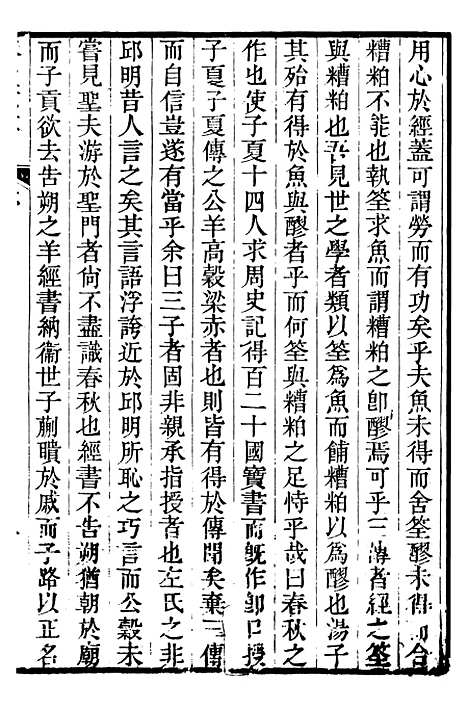 用心於經蓋可謂勞而有功矣乎夫魚未得而舍筌醪未得而合
糟粕不能也執筌求魚而謂糟粕之卽醪焉可乎三傳者經之筌
與糟粕也吾見世之學者類以筌爲魚而餔糟粕以爲醪也湯子
其殆有得於魚與醪者乎而何筌與糟粕之足恃乎哉曰春秋之
作也使子夏十四人求周史記得百二十國寶書而旣作卽口授
子夏子夏傳之公羊高穀梁赤者也則皆有得於傳聞矣棄三傳
而自信豈遂有當乎余曰三子者固非親承指授者也左氏之非
邱明昔人言之矣其言語浮誇近於邱明所恥之巧言而公穀未
嘗見聖夫游於聖門者尙不盡識春秋也經書不告朔猶朝於廟
而子貢欲去告朔之羊經書納衞世子蒯聵於戚而子路以正名